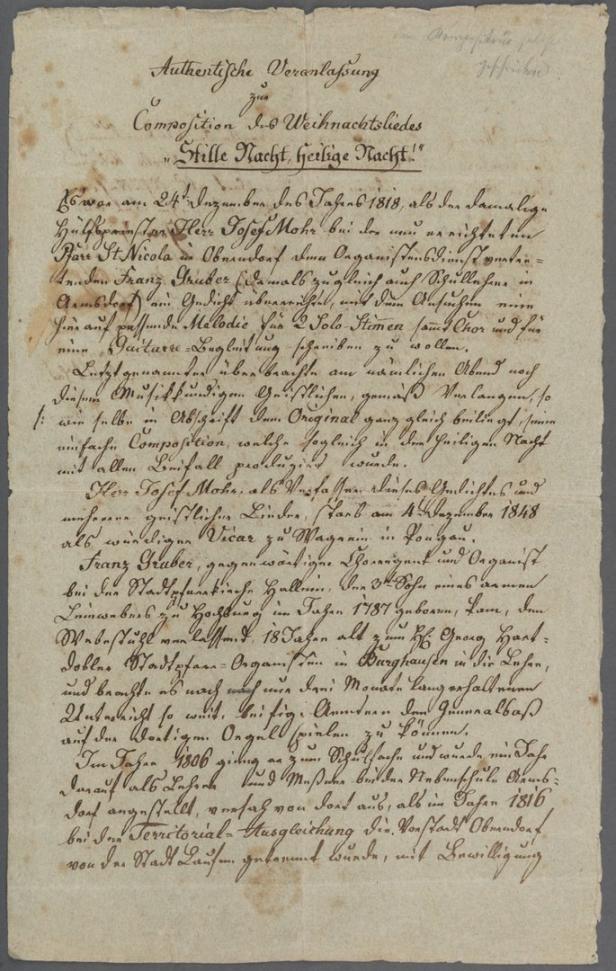 Authentische Veranlassung
zur
Composition des Weihnachtsliedes
„Stille Nacht, heilige Nacht!“
Es war am 24t Dezember des Jahres 1818, als der damalige
Hülfspriester Herr Josef Mohr bei der neu errichteten
Pfarr St Nicola in Oberndorf dem Organistensdienst vertre=
tenden Franz Gruber (damals zugleich auch Schullehrer in
Arnsdorf) ein Gedicht überreichte, mit dem Ansuchen eine
hierauf passende Melodie für 2 Solo-Stimen samt Chor und für
eine Guitarre-Begleitung schreiben zu wollen.
Letztgenannter überbrachte am nämlichen Abend noch
diesem Musikkundigen Geistlichen, gemäß Verlangen, so
/: wie selbe in Abschrift dem Original ganz gleich beiliegt, seine
einfache Composition, welche sogleich in der heiligen Nacht
mit allen Beifall produzirt wurde.
Herr Josef Mohr, als Verfasser dieses Gedichtes und
mehrerer geistlicher Lieder, starb am 4t Dezember 1848
als würdiger Vicar zu Wagrein in Pongau.
Franz Gruber, gegenwärtiger Chorregent und Organist
bei der Stadtpfarrkirche Hallein, der 3te Sohn eines armen
Leinwebers zu Hochburg im Jahre 1787 geboren, kam, den
Webestuhl verlassend, 18 Jahre alt zum H. Georg Hart=
dobler Stadtpfarr-Organisten in Burghausen in die Lehre,
und brachte es nach nur drei Monate lang erhaltenen
Unterricht so weit, bei fig. Aemtern den Generalbaß
auf der dortigen Orgel spielen zu können.
Im Jahre 1806 gieng er zum Schulfache und wurde ein Jahr
darauf als Lehrer und Meßner bei der Nebenschule Arns=
dorf angestellt, versah von dort aus, als im Jahre 1816
bei der Territorial-Ausgleichung die Vorstadt Oberndorf
von der Stadt Laufen getrennt wurde, mit Bewilligung